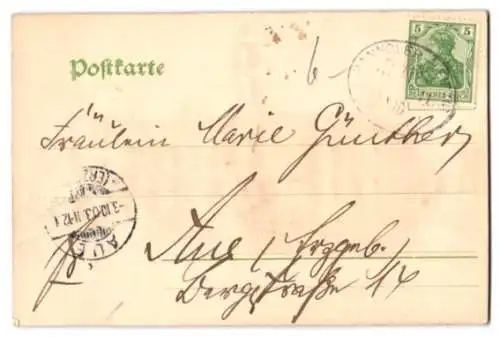 Postkarte
6
5 5
HANNOVER
Fräulein Marie Günther
3.10.03. 11-12
AUE
Aue, Erzgeb.
Bergstraße 14